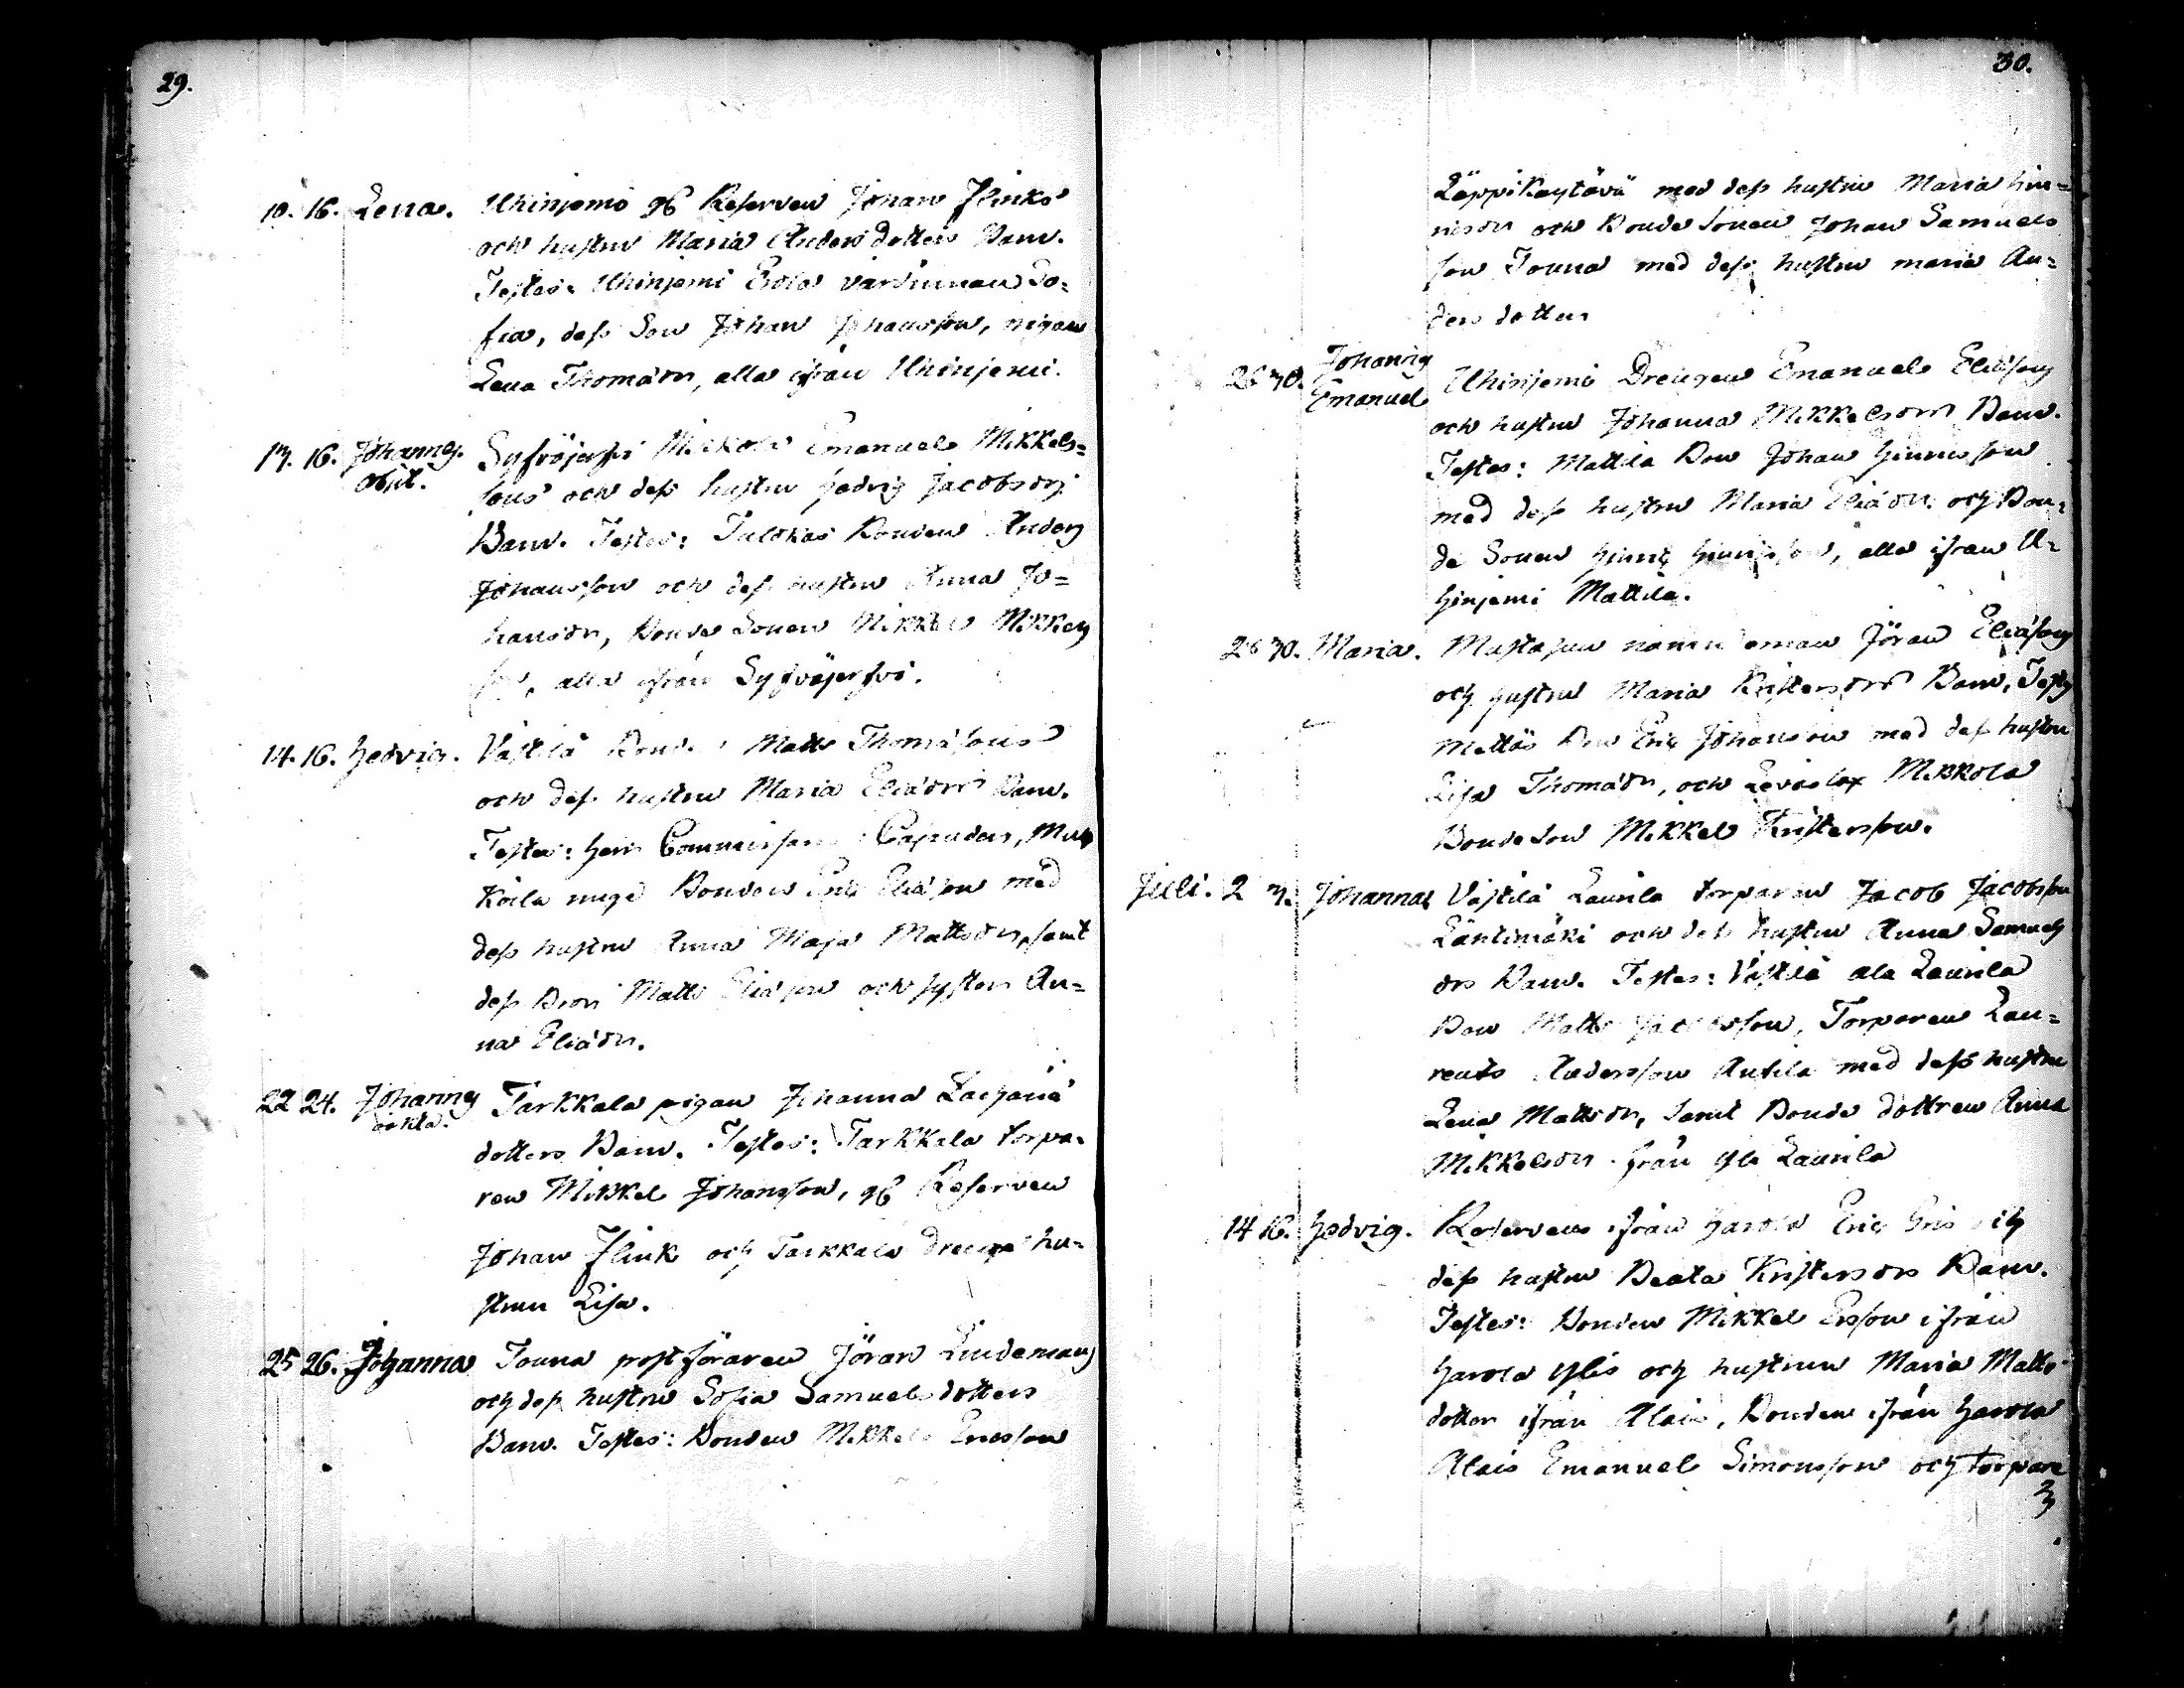 29.
10. 16. Lena. Uhinjemi g6 Reserven Johan Flinks
och hustru Maria Anders dotters Barn.
Testes: Uhinjemi Erola värdinnan So=
fia, dess Son Johan Johansson, pigan
Lena Thomädr, alla ifrån Uhinjemi.
13. 16. Johannes. Syfvöjerfvi Mickola Emanuel Mikkels=
obiit. sons och dess hustru Hedvig Jacobsdrs
Barn. Testes: Tulokas Bonden Anders
Johansson och dess hustru Anna Jo=
hansdr, Bonde Sonen Mikkel Mikkels
son, alla ifrån Syfvöjerfvi.
14. 16. Hedvig. Västilä Bonden Matts Thomäsons
och dess hustru Maria Eliädrs Barn.
Testes: Herr Commissarien
Bonden Eric Eliäson med
dess hustru Anna Maja Mattsdr, samt
dess Bror Matts Eliäson och syster An=
na Eliädr.
22 24. Johannes Tarkkala pigan Johanna Zachariä
oäkta. dotters Barn. Testes: Tarkkala torpa=
ren Mikkel Johansson, g6 Reserven
Johan Flink och Tarkkala drengs hu=
strun Lisa.
25 26. Johanna Touna postföraren Jöran Lindemans
och dess hustru Sofia Samuels dotters
Barn. Testes: Bonden Mikkel Ericsson
30.
Läppikäytävä med dess hustru Maria Hin=
ricsdr och Bonde Sonen Johan Samuels
son Touna med dess hustru Maria An=
ders dotter
26 30. Johannes
Emanuel Uhinjemi Drengen Emanuel Eliäsons
och hustru Johanna Mikkelsdrs Barn.
Testes: Mattila Bon Johan Hinricsson
med dess hustru Maria Eliädr och Bon=
de Sonen Hinric Hinricsson, alla ifrån U=
hinjemi Mattila.
26 30. Maria. Jöran Eliäsons
och hustru Maria Kristersdrs Barn, Testes
Mattas Bon Eric Johansson med dess hustru
Lisa Thomädr, och Levaslax Mikkola
Bondeson Mikkel Kristersson.
Juli. 2 3. Johannes Västilä Laurila torparen Jacob Jacobsson
Läntimäki och dess hustru Anna Samuels
drs Barn. Testes: Västilä ala Laurila
Bon Matts Jacobsson, Torparen Lau=
rents Andersson Antila med dess hustru
Lena Mattsdr, samt Bonde dottren Anna
Mikkelsdr från Yli Laurila
14 16. Hedvig. Reservens ifrån Harola Eric Gris och
dess hustru Beata Kristersdrs Barn.
Testes: Bonden Mikkel Ersson ifrån
Harola Ylis och hustrun Maria Matts
dotter ifrån Alais, Bonden ifrån Harola
Alais Emanuel Simonsson och torpare